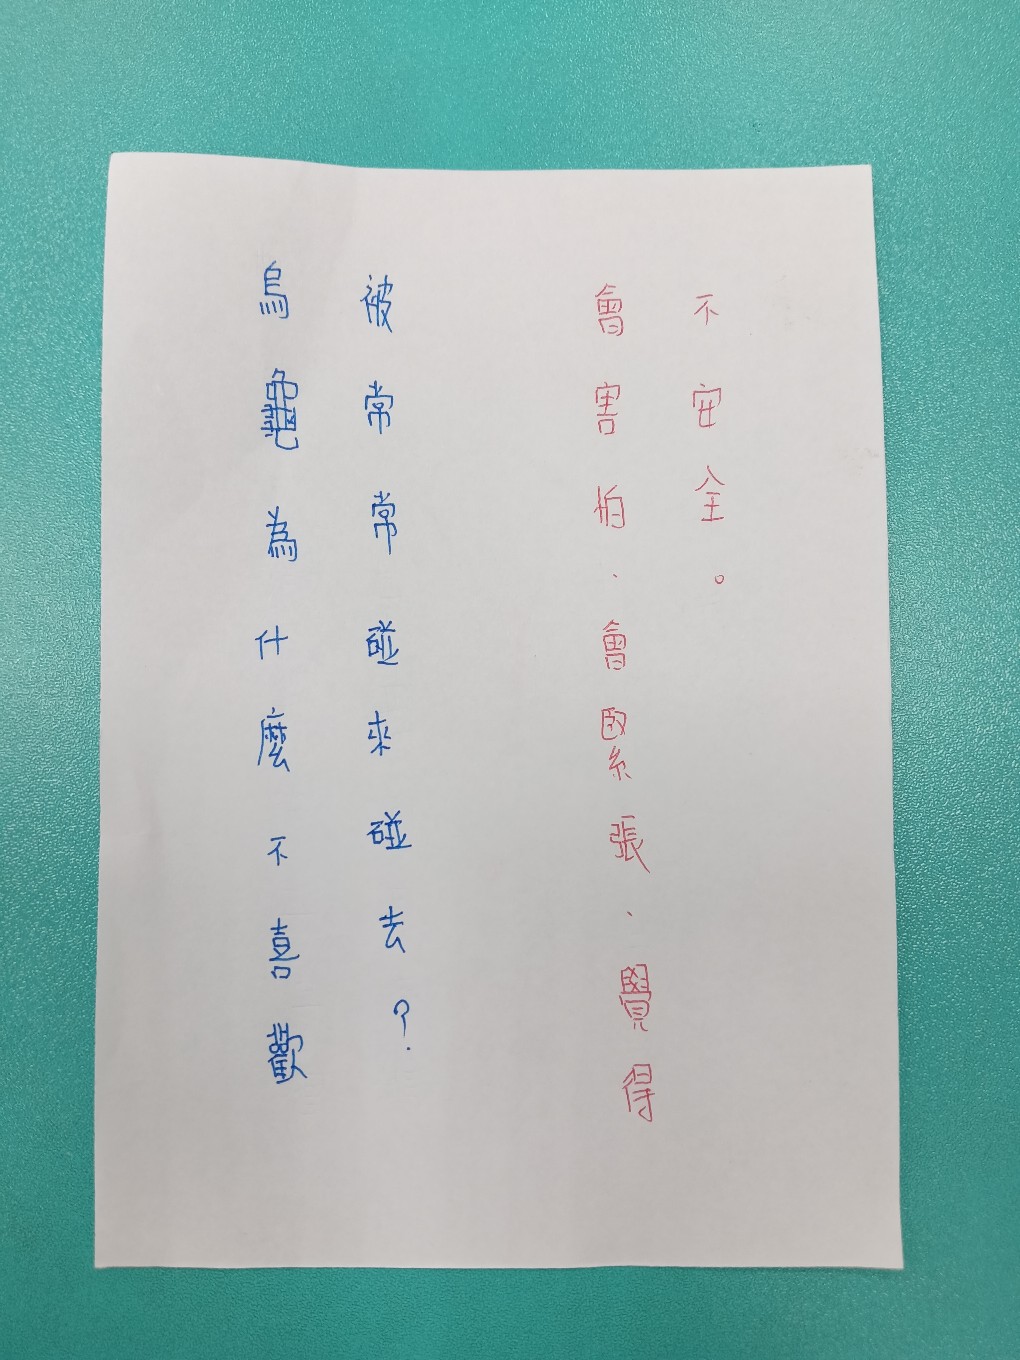 烏龜為什麼不喜歡
被常常碰來碰去？
會害怕、會緊張、覺得
不安全。